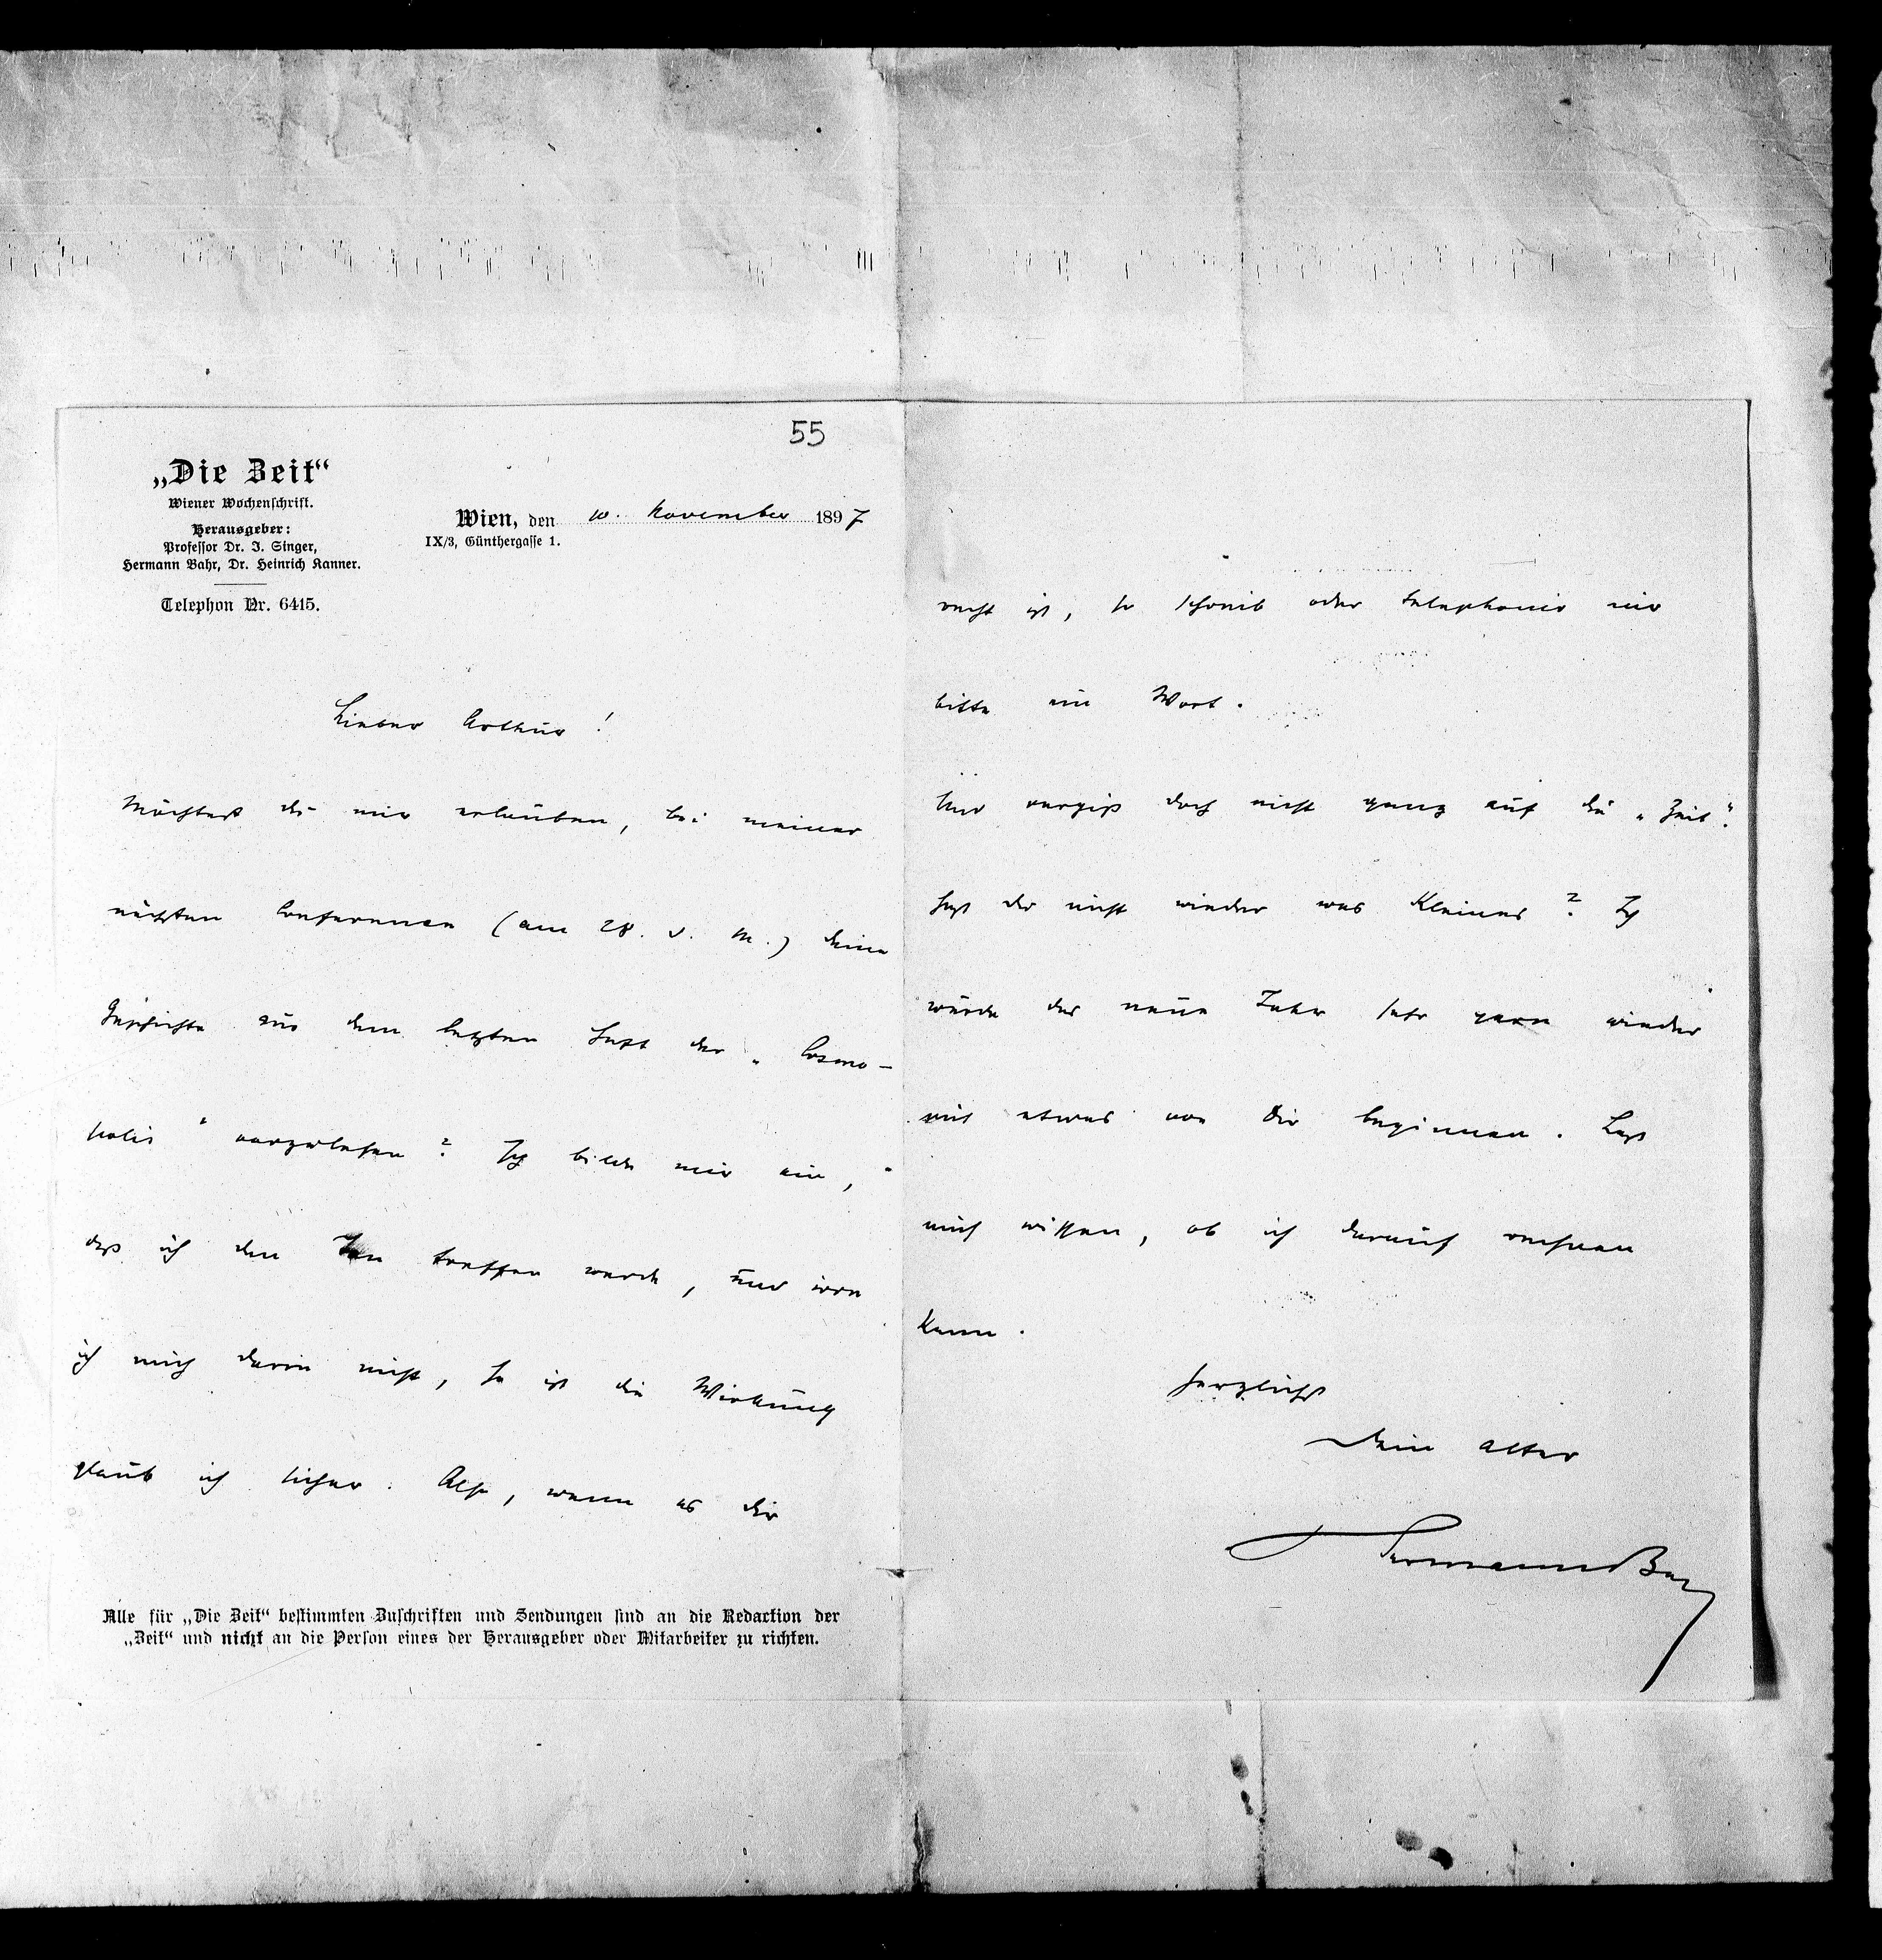 55
„Die Zeit“
Wiener Wochenschrift.
Herausgeber:
Professor Dr. I. Singer,
Hermann Bahr, Dr. Heinrich Kanner.
Telephon Nr. 6415.
Wien, den 10. November 1897
IX/3, Günthergasse 1.
Lieber Arthur!
Möchtest du mir erlauben, bei meiner
nächsten Conference (am 28. d. M.) deine
Geschichte aus dem letzten Heft der „Cosmo-
polis“ vorzulesen? Ich bilde mir ein,
daß ich den Ton treffen werde, und irre
ich mich darin nicht, so ist die Wirkung
glaub ich sicher. Also, wenn es dir
Alle für „Die Zeit“ bestimmten Zuschriften und Sendungen sind an die Redaction der
„Zeit“ und nicht an die Person eines der Herausgeber oder Mitarbeiter zu richten.
recht ist, so schreib oder telephonir mir
bitte ein Wort.
Und vergiß doch nicht ganz auf die „Zeit“.
Hast du nicht wieder was Kleines? Ich
würde das neue Jahr sehr gern wieder
mit etwas von Dir beginnen. Laß
mich wissen, ob ich darauf rechnen
kann.
Herzlichst
Dein alter
Hermann Bahr